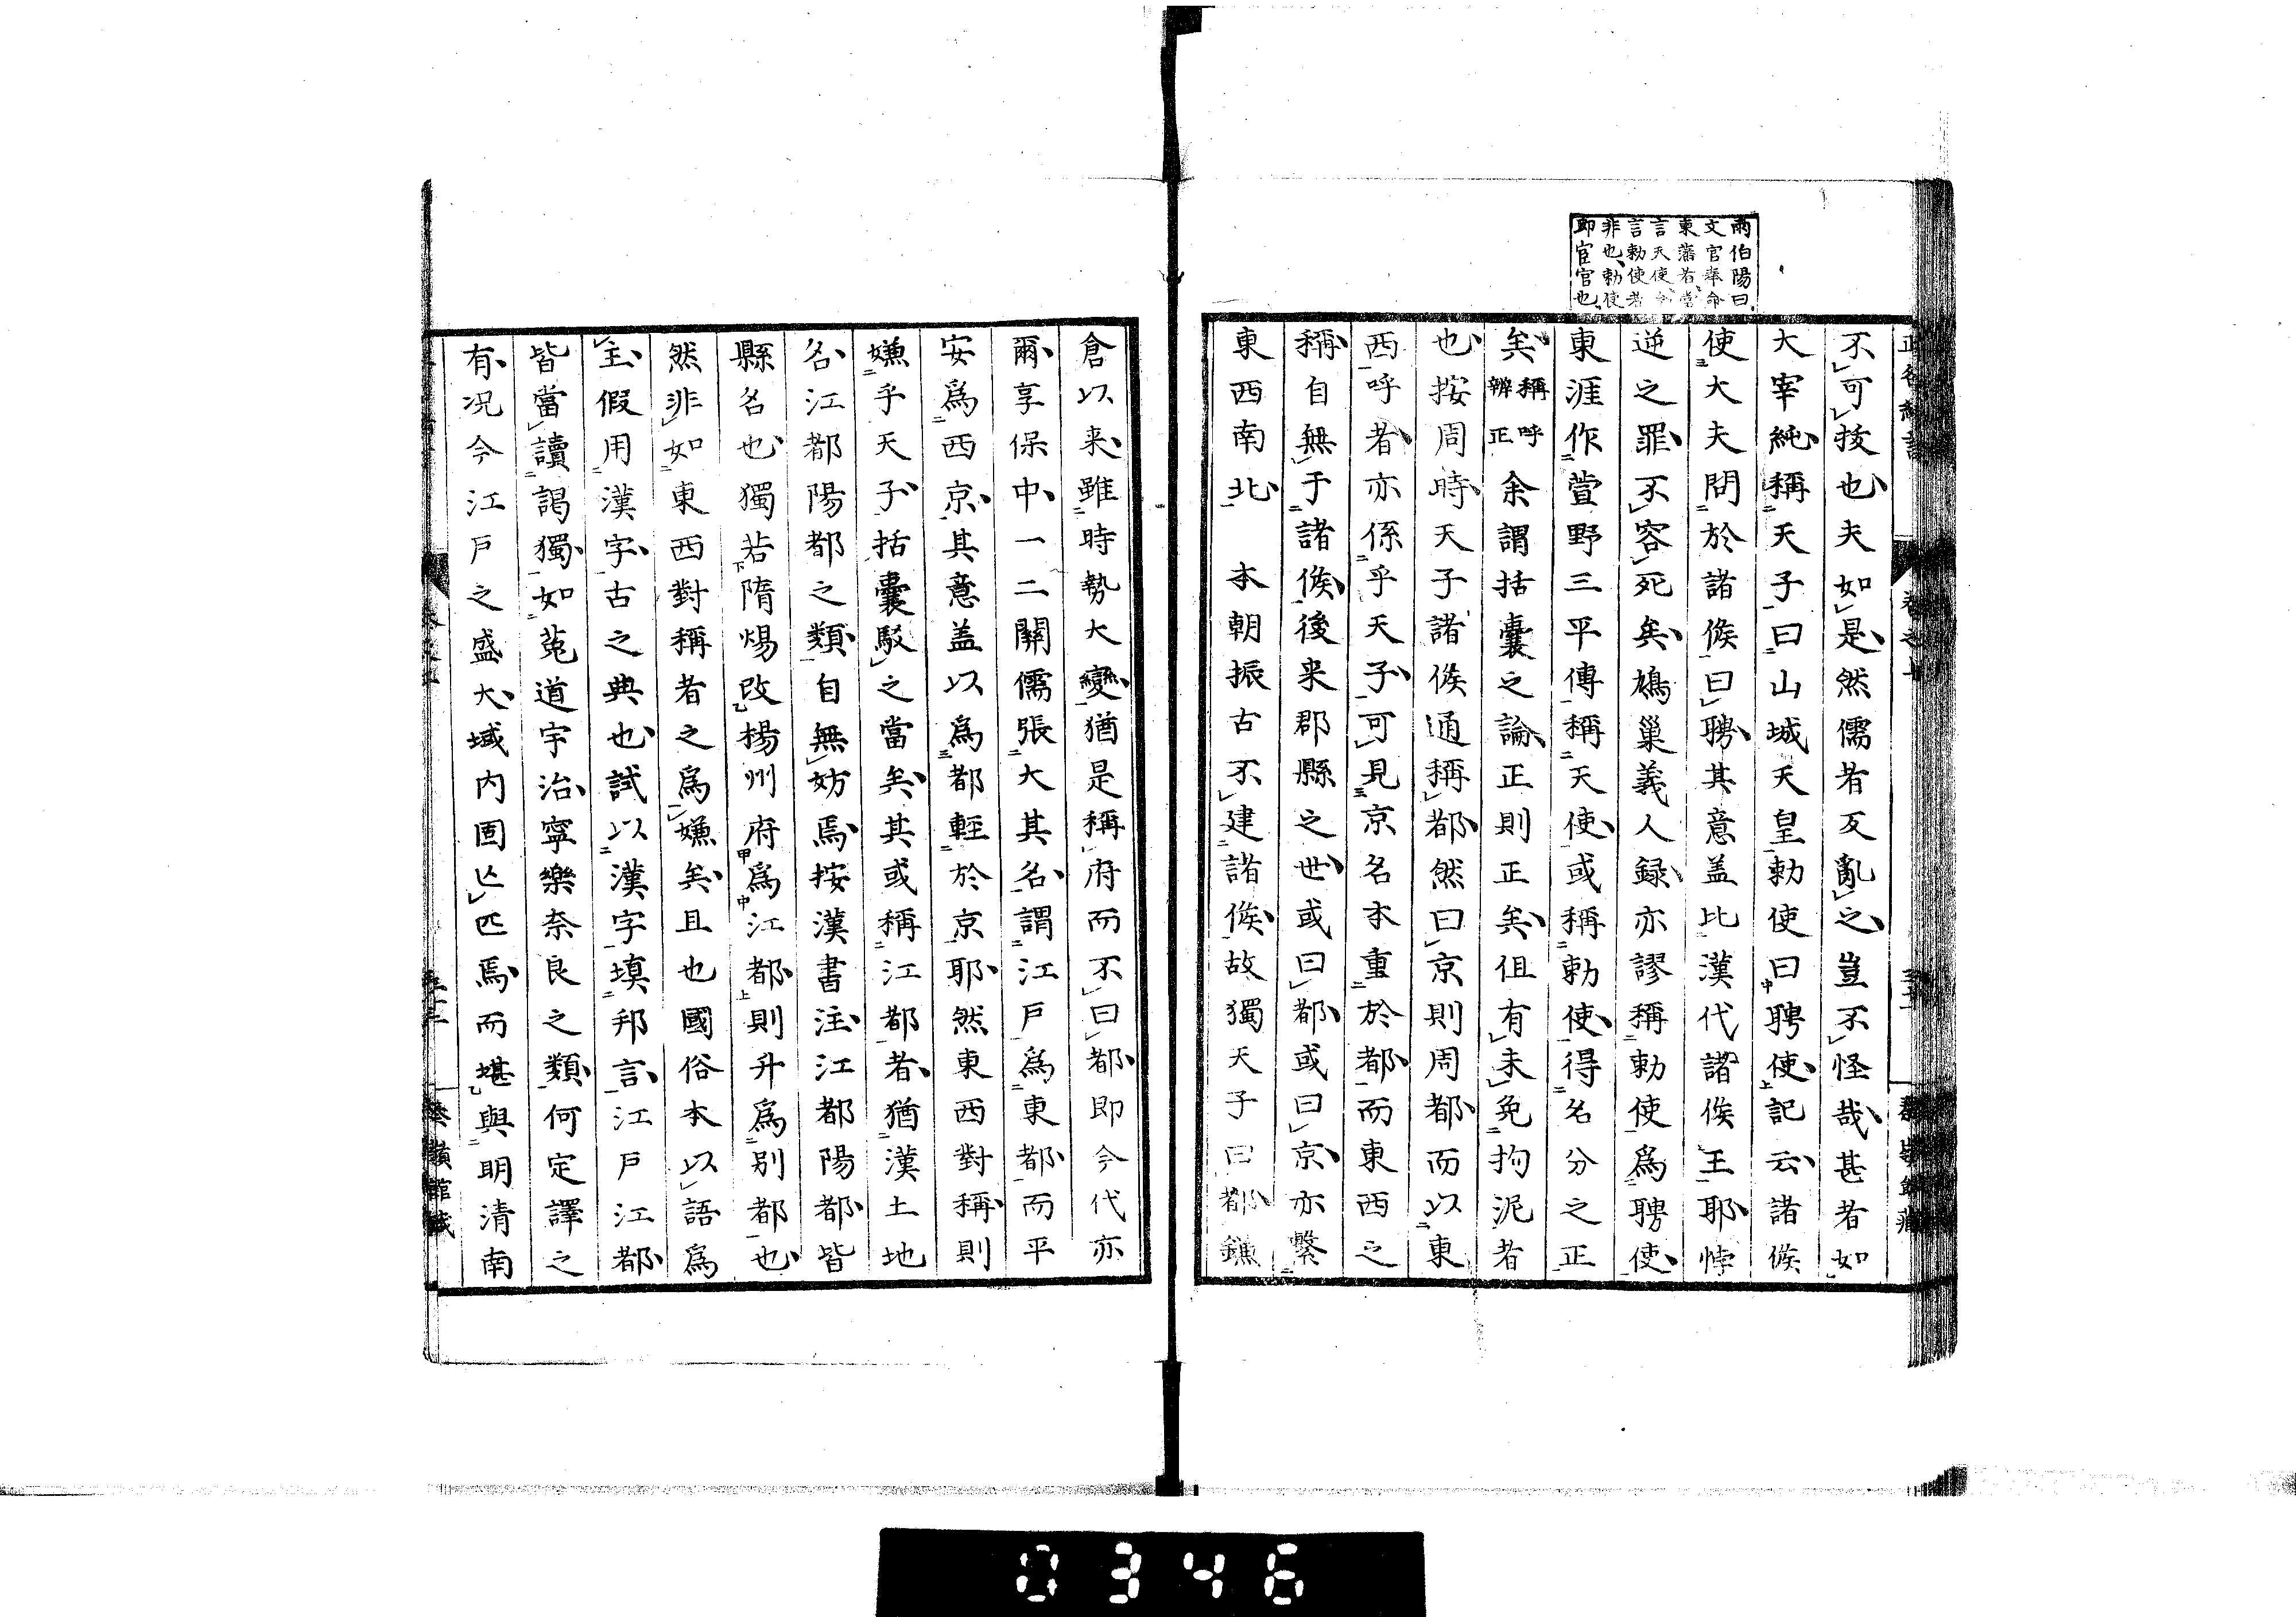 雨伯陽曰
文官奉命
東藩者當
言天使
言勅使者
非也勅使
即宦官也
不可技也夫如是然儒者反亂之豈不怪哉甚者如
大宰純稱天子曰山城天皇勅使曰聘使記云諸侯
使大夫問於諸侯曰聘其意盖比漢代諸侯王耶悖
逆之罪不容死矣鳩巢義人録亦謬稱勅使爲聘使
東涯作萱野三平傳稱天使或稱勅使得名分之正
矣稱呼辨正余謂括囊之論正則正矣但有未免拘泥者
也按周時天子諸侯通稱都然曰京則周都而以東
西呼者亦係乎天子可見京名本重於都而東西之
稱自無于諸侯後來郡縣之世或曰都或曰京亦繫
東西南北 本朝振古不建諸侯故獨天子曰都鎌
倉以来雖時勢大變猶是稱府而不曰都即今代亦
爾享保中一二關儒張大其名謂江戸爲東都而平
安爲西京其意盖以爲都輕於京耶然東西對稱則
嫌乎天子括囊駁之當矣其或稱江都者猶漢土地
名江都陽都之類自無妨焉按漢書注江都陽都皆
縣名也獨若隋煬改楊州府爲江都則升爲別都也
然非如東西對稱者之爲嫌矣且也國俗本以語爲
主假用漢字古之典也試以漢字塡邦言江戸江都
皆當讀謁獨如菟道宇治寧樂奈良之類何定譯之
有况今江戸之盛大域内固亡匹焉而堪與明清南